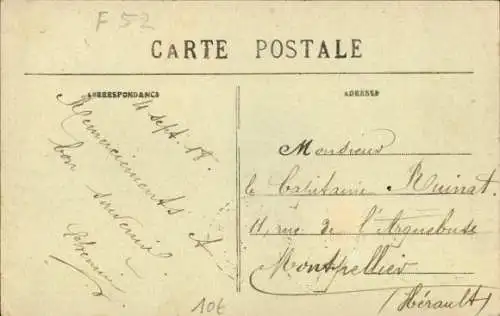 F 52
CARTE POSTALE
CORRESPONDANCE
ADRESSE
4 sept. 18.
Remerciements et
bon souvenir.
Monsieur
le Capitaine Ruinat
11, rue de l'Arquebuse
Montpellier
(Hérault)
10€